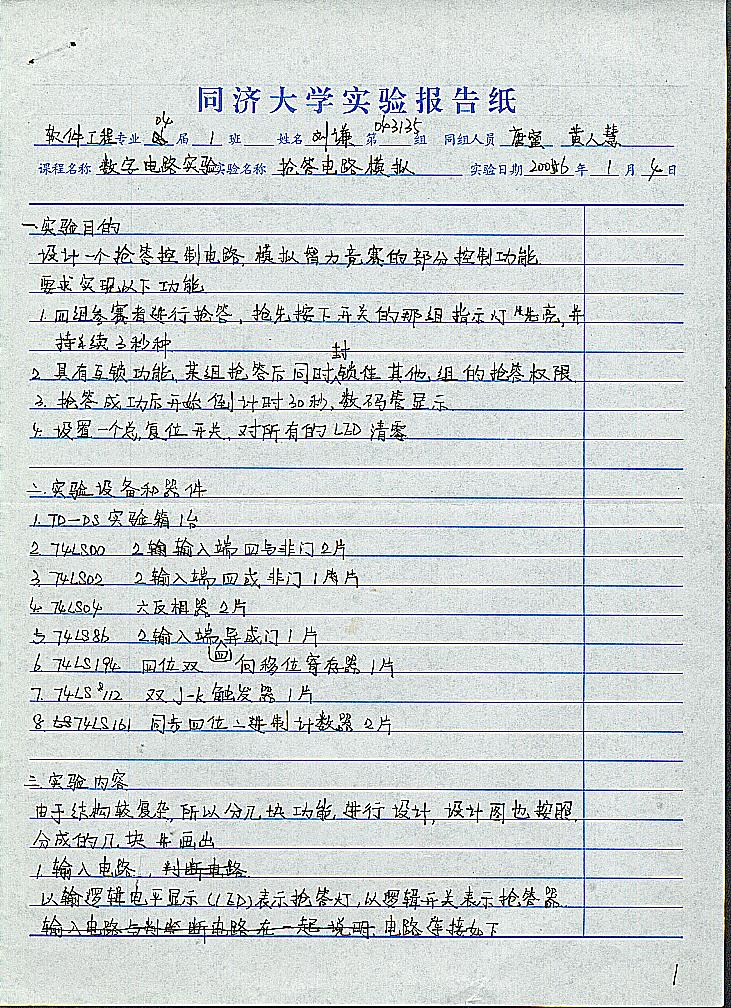 同济大学实验报告纸
软件工程专业 04 届 1 班 姓名 刘谦 第 043135 组 同组人员 唐蜜 黄人慧
课程名称 数字电路实验 实验名称 抢答电路模拟 实验日期 2006 年 1 月 4 日
一.实验目的
设计一个抢答控制电路,模拟智力竞赛的部分控制功能
要求实现以下功能
1.四组参赛者进行抢答,抢先按下开关的那组指示灯先亮,并
持续3秒种
2.具有互锁功能,某组抢答后同时封锁住其他组的抢答权限.
3.抢答成功后开始倒计时30秒,数码管显示.
4.设置一个总复位开关,对所有的LED清零
二.实验设备和器件
1.TD-DS实验箱1台
2.74LS00 2输入端四与非门2片
3.74LS02 2输入端四或非门1片
4.74LS04 六反相器2片
5.74LS86 2输入端四异或门1片
6.74LS194 四位双向移位寄存器1片
7.74LS112 双J-k触发器1片
8.74LS161 同步四位二进制计数器2片
三.实验内容
由于结构较复杂,所以分几块功能进行设计,设计图也按照
分成的几块来画出
1.输入电路,判断电路
以逻辑电平显示(LED)表示抢答灯,以逻辑开关表示抢答器.
输入电路与判断电路在一起说明.电路连接如下
1